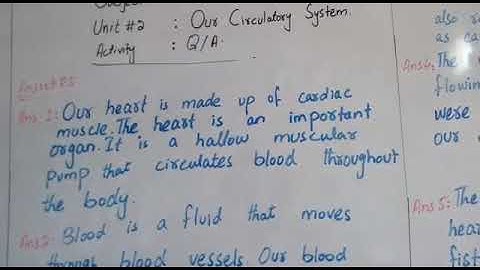 Unit #2 : Our Circulatory System.
Activity : Q/A.
Answers
Ans.1: Our heart is made up of cardiac
muscle. The heart is an important
organ. It is a hallow muscular
pump that circulates blood throughout
the body.
Ans2: Blood is a fluid that moves
through blood vessels. Our blood
also
as ca
Ans4: The
flowin
were
our
Ans5: The
hear
fist